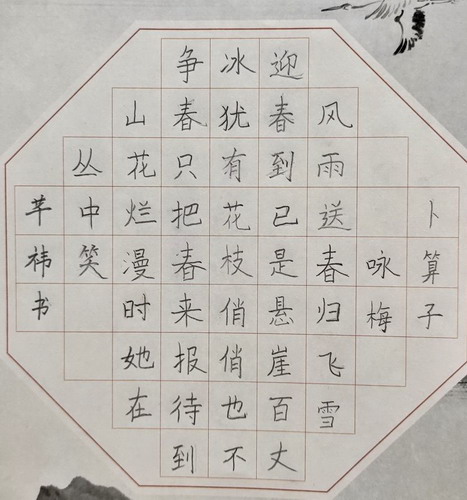 卜算子
咏梅
风雨送春归飞雪
迎春到已是悬崖百丈
冰犹有花枝俏俏也不
争春只把春来报待到
山花烂漫时她在
丛中笑
芊祎书